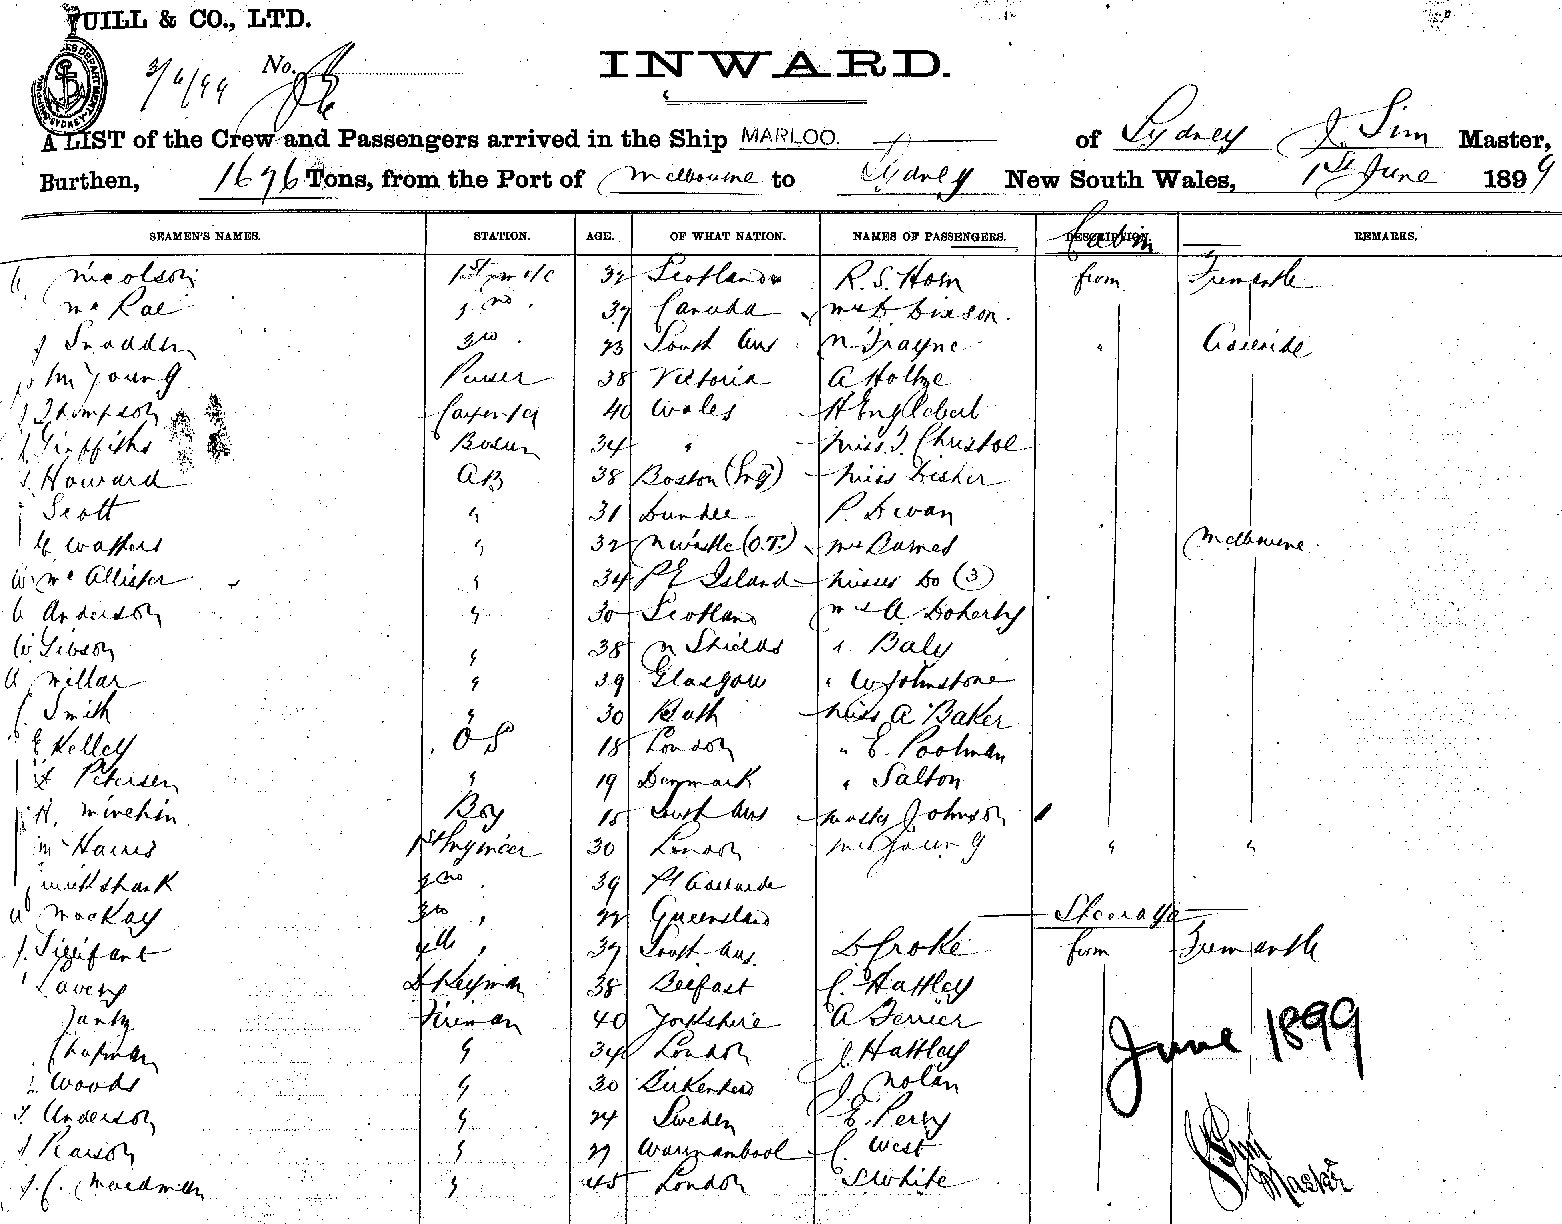 UILL & CO., LTD.
No.
INWARD.
A LIST of the Crew and Passengers arrived in the Ship MARLOO. of Sydney J. Sim Master,
Burthen, 1696 Tons, from the Port of Melbourne to Sydney New South Wales, 1st June 1899
SEAMEN'S NAMES. STATION. AGE. OF WHAT NATION. NAMES OF PASSENGERS. DESCRIPTION. REMARKS.
Cabin
Nicolson 1st 32 Scotland R. S. Horn from Fremantle
Mc Rae 2nd 37 Canada
3rd 23 South Aus N Trayne " Adelaide
Young Purser 38 Victoria A Holtze
Thompson Carpenter 40 Wales H Englebert
Griffiths Bosun 34 " Miss Christoe
Howard AB 38 Boston (Eng) Miss Fisher
Scott " 31 Dundee P. Devan
Watters " 32 Mrs Barnes Melbourne
W Mc Allister " 34 P E Island Misses Do (3)
Anderson " 30 Scotland Mrs A Doherty
W Gibson " 38 N Shields " Baly
A Millar " 39 Glasgow " W Johnstone
Smith " 30 Bath Miss A Baker
E Kelley O S 18 London " E. Poolman
Petersen " 19 Denmark " Salton
H. Minchin Boy 15 South Aus Master Johnson
Harris 1st Engineer 30 London Mrs Young " "
Cruickshank 2nd 39 Pt Adelaide
MacKay 3rd " 22 Queensland Steerage
4th " 39 South Aus. D Croke from Fremantle
Lavery Dkeyman 38 Belfast C. Hattley
Fireman 40 Yorkshire A Ferrier
Chapman " 34 London J. Hattley
Woods " 30 Birkenhead J Nolan
Anderson " 24 Sweden E. Percy
Pearson " 27 Warrnambool C. West
" 45 London S White
June 1899
J Sim
Master